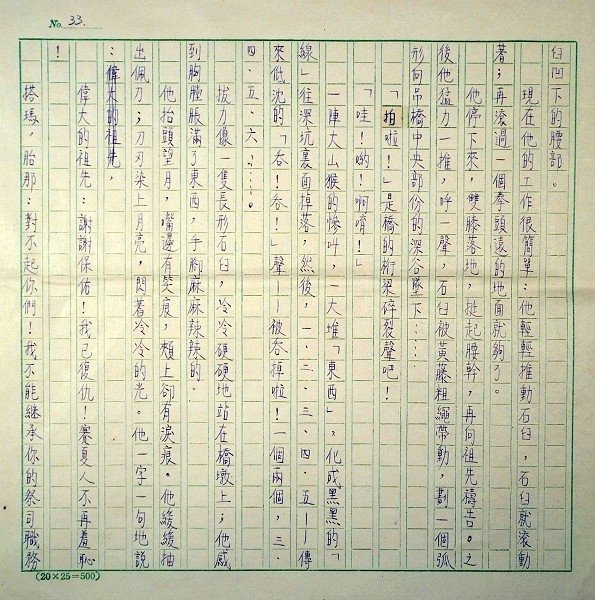 No. 33.
臼凹下的腰部。
現在他的工作很簡單：他輕輕推動石臼，石臼就滾動
著；再滾過一個拳頭遠的地面就夠了。
他停下來，雙膝落地，挺起腰幹，再向祖先禱告。之
後他猛力一推，呼一聲，石臼被黃藤粗繩帶動，劃一個弧
形向吊橋中央部份的深谷墜下……
「拍啦！」是橋的桁梁碎裂聲吧！
「哇！喲！啊唷！」
一陣大山猴的慘叫，一大堆「東西」，化成黑黑的「
線」往深坑裏面掉落，然後，一、二、三、四、五——傳
來低沈的「吞！吞！」聲——被吞掉啦！一個兩個，三、
四、五、六！……。
拔力像一隻長形石臼，冷冷硬硬地站在橋墩上；他感
到胸膛脹滿了東西，手腳麻麻辣辣的。
他抬頭望月，嘴邊有笑痕，頰上卻有淚痕。他緩緩抽
出佩刀；刀刃染上月亮，閃著冷冷的光。他一字一句地說
：偉大的祖先，
偉大的祖先：謝謝保佑！我已復仇！賽夏人不再羞恥
！
搭瑪，胎那：對不起你們！我不能繼承你的祭司職務
(20×25=500)